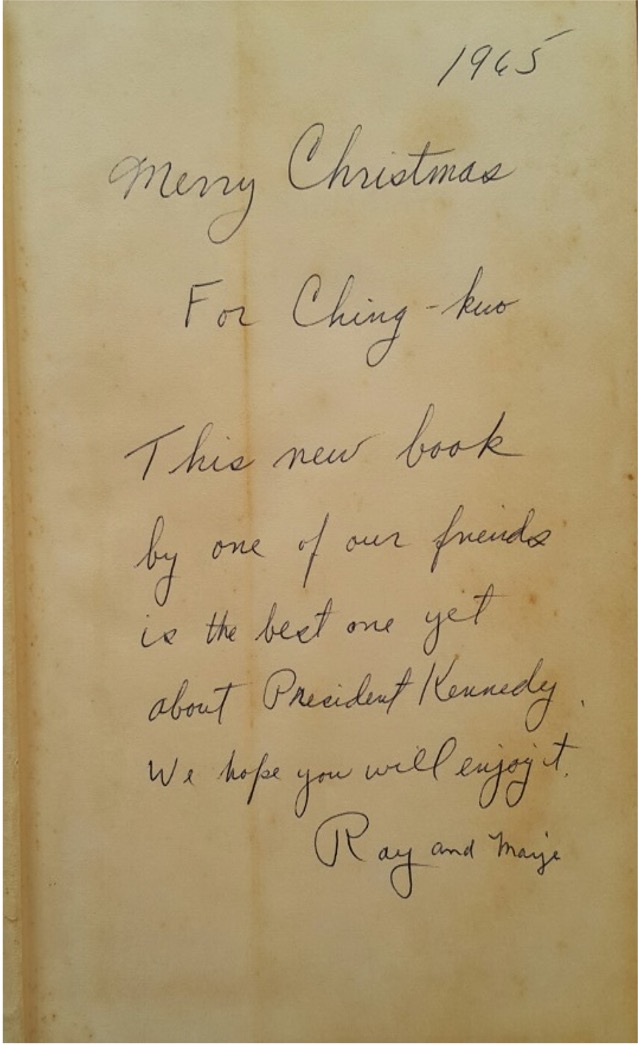 1965
Merry Christmas
For Ching-kuo
This new book
by one of our friends
is the best one yet
about President Kennedy.
We hope you will enjoy it.
Ray and Marje